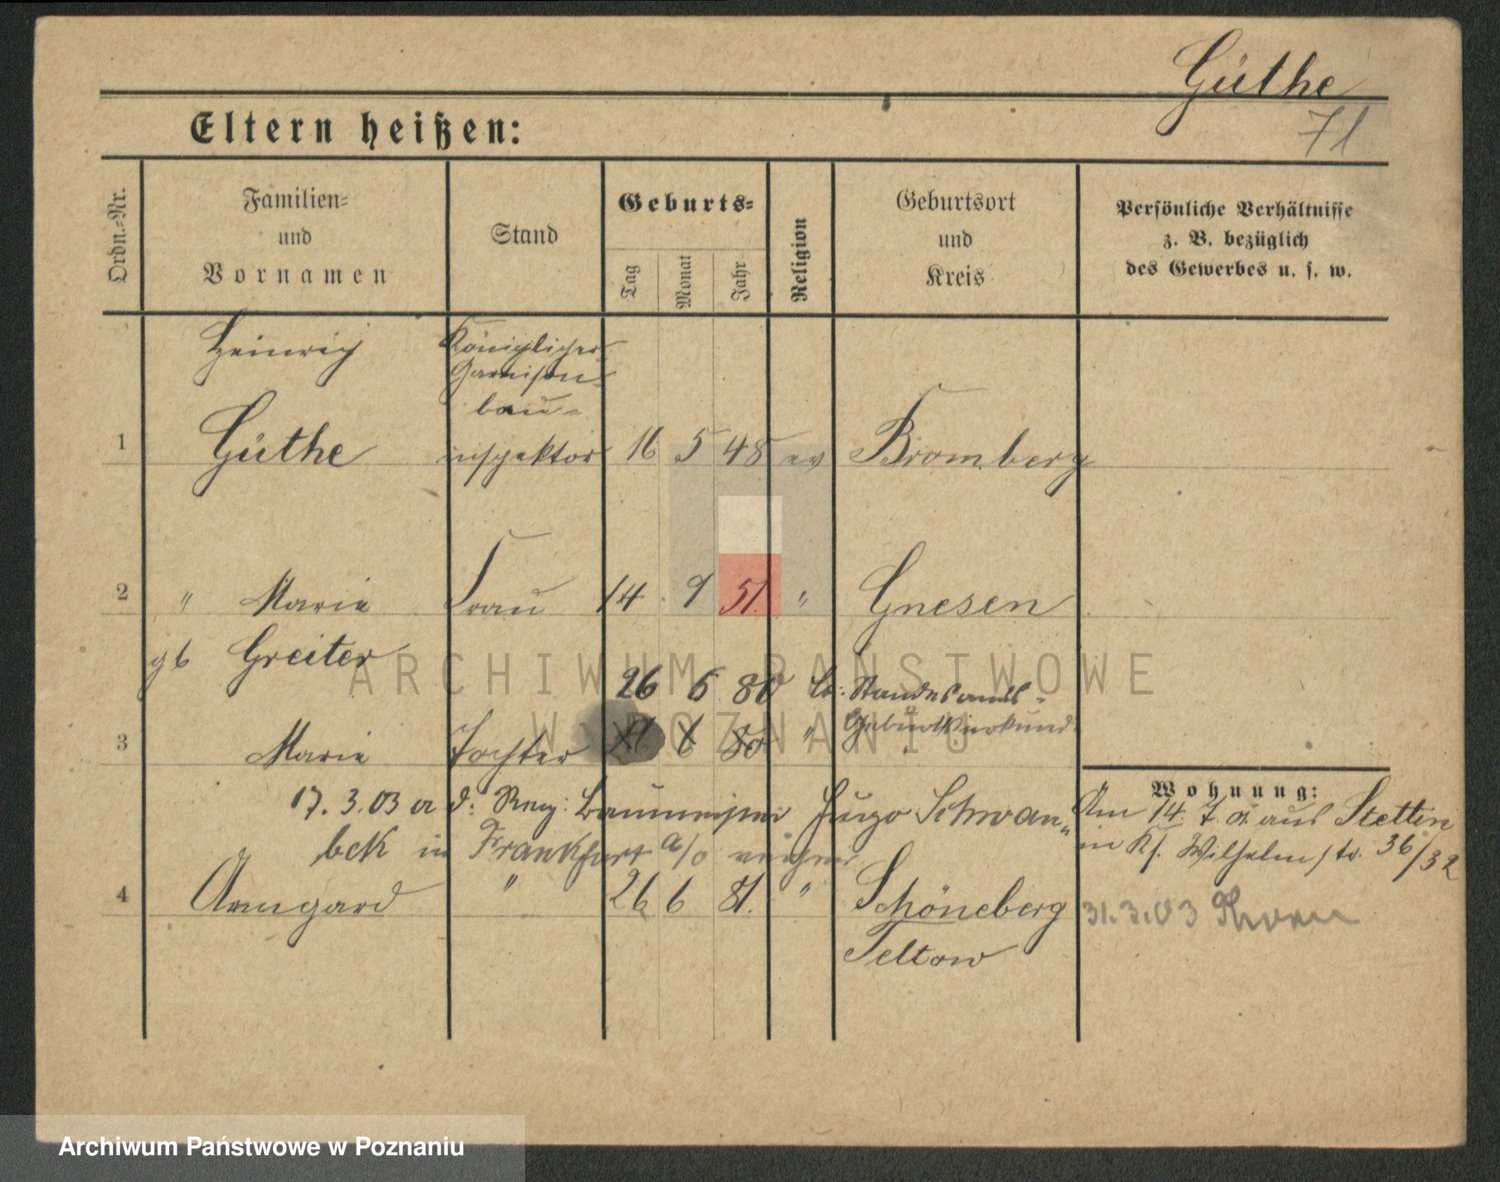 Güthe
71
Eltern heißen:
Ordn.-Nr.
Familien-
und
Vornamen
Stand
Geburts-
Tag
Monat
Jahr
Religion
Geburtsort
und
Kreis
Persönliche Verhältnisse
z. B. bezüglich
des Gewerbes u. s. w.
Heinrich Königlicher
Garnison-
bau-
1 Güthe inspektor 16 5 48 ev Bromberg
2 " Marie Frau 14 9 51. " Gnesen
gb Greiter
26 6 80 lt: Standesamts-
Geburtsurkunde
3 Marie Tochter 6 80 "
Wohnung:
17. 3. 03 a d: Reg: Baumeister Hugo Schwan-
beck in Frankfurt a/o
Am 14. 7. 01 aus Stettin
in Ks. Wilhelmstr. 36/32
4 Armgard " 26 6 81. " Schöneberg
Teltow
31.3.03 Thorn
ARCHIWUM PAŃSTWOWE
W POZNANIU
Archiwum Państwowe w Poznaniu